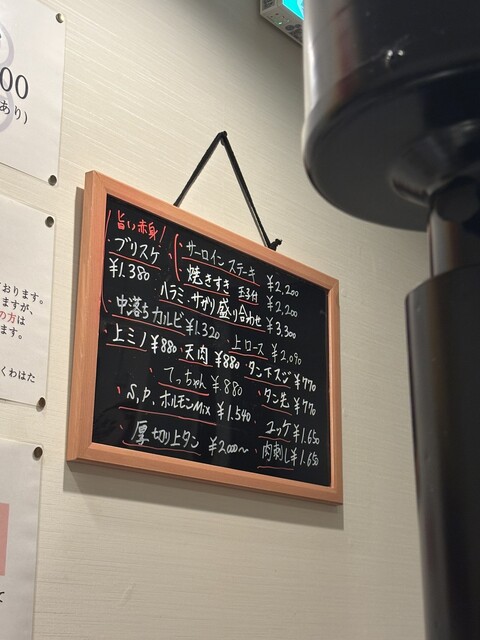 00
あり)
おります。
ますが、
の方は
ます。
くわはた
旨い赤身!
・ブリスケ
¥1.380
・サーロインステーキ ¥2,200
焼きすき 玉子付 ¥2,200
ハラミ、サガリ盛り合わせ ¥3,300
・中落ちカルビ ¥1.320
・上ロース ¥2,090
・上ミノ ¥880
・天肉 ¥880
・タン下スジ ¥770
・てっちゃん ¥880
・タン先 ¥770
・S,P.ホルモンMix ¥1.540
・ユッケ ¥1.650
・厚切り上タン ¥2000〜
・肉刺し ¥1.650